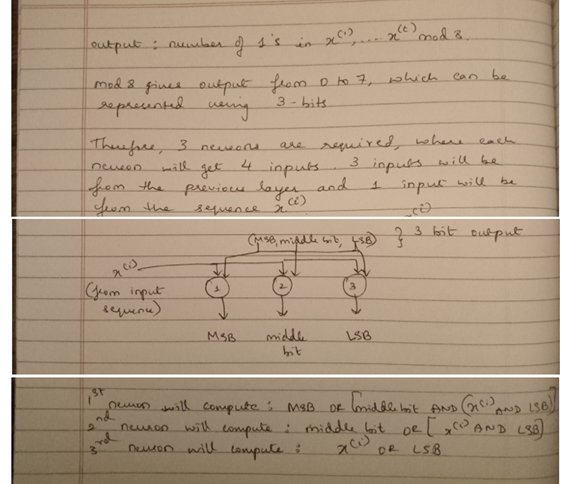 output : number of 1's in x^(1), .... x^(t) mod 8.
mod 8 gives output from 0 to 7, which can be
represented using 3-bits
Therefore, 3 neurons are required, where each
neuron will get 4 inputs. 3 inputs will be
from the previous layer and 1 input will be
from the sequence x^(i)
(MSB, middle bit, LSB) } 3 bit output
x^(i)
(from input
sequence)
1 2 3
MSB middle
bit LSB
1st neuron will compute : MSB OR [middle bit AND (x^(i) AND LSB)]
2nd neuron will compute : middle bit OR [x^(i) AND LSB]
3rd neuron will compute : x^(i) OR LSB